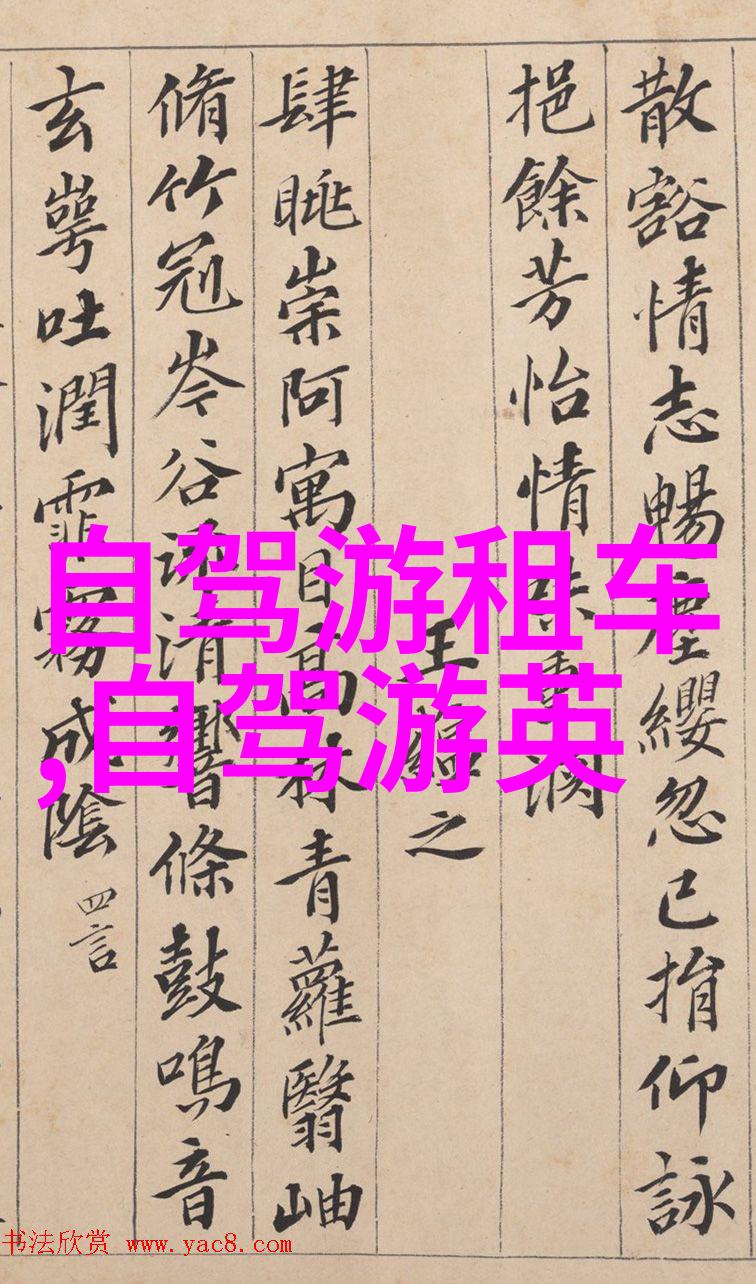 散豁情志暢塵纓忽已捐仰詠
挹餘芳怡情味重淵
王之
肆眺崇阿寓目高林青蘿翳岫
脩竹冠岑谷流清響條鼓鳴音
玄崿吐潤霏霧成陰 四言
自驾游租车
,自驾游英
书法欣赏 www.yac8.com